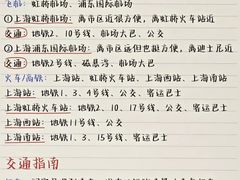 飞机：虹桥机场、浦东国际机场
①上海虹桥机场：离市区近很方便，离虹桥火车站近
交通：地铁2、10号线、机场大巴、公交
②上海浦东国际机场：离市区远但也挺方便，离迪士尼近
交通：地铁2号线、磁悬浮、机场大巴
火车/高铁：上海站、虹桥火车站、上海西站、上海南站
上海站：地铁1、3、4号线、公交、客运巴士
上海虹桥火车站：地铁2、10、17号线、公交、客运巴士
上海西站：地铁11号线、公交
上海南站：地铁1、3、15号线、客运巴士
交通指南